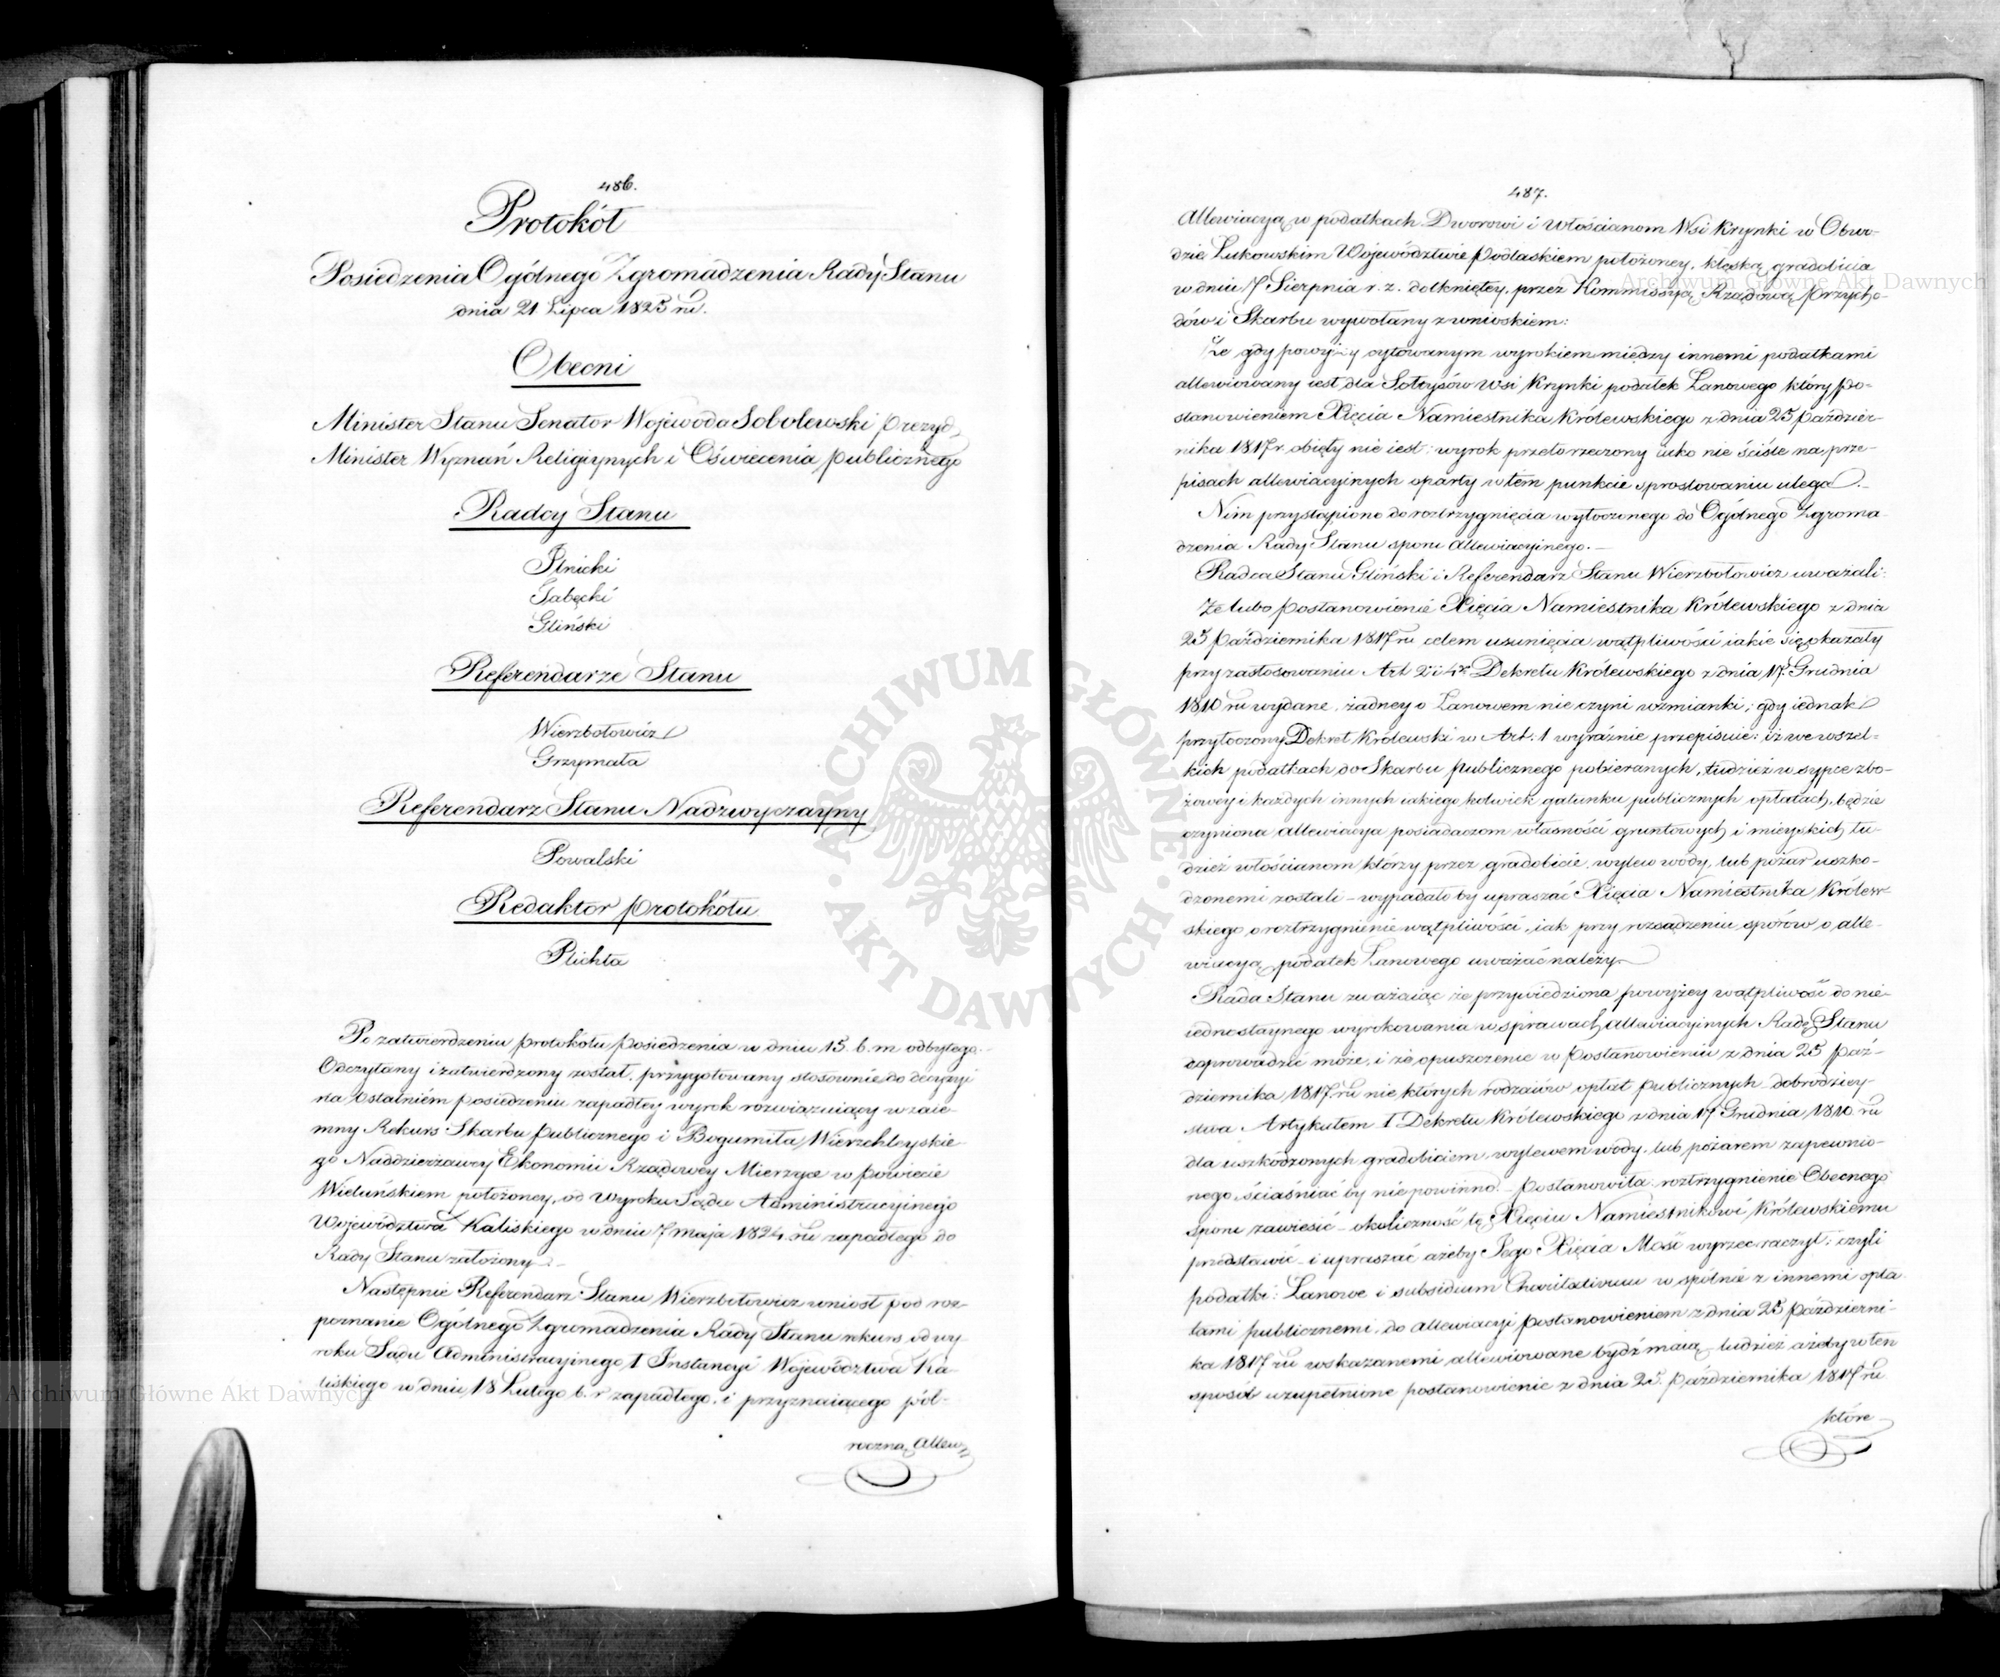 486.
Protokół
Posiedzenia Ogólnego Zgromadzenia Rady Stanu
dnia 21 Lipca 1825 ru.
Obecni
Minister Stanu Senator Wojewoda Sobolewski Prezyd.
Minister Wyznań Religiynych i Oświecenia publicznego
Radcy Stanu
Ilnicki
Łabęcki
Gliński
Referendarze Stanu
Wierzbołowicz
Grzymała
Referendarz Stanu Nadzwyczayny
Powalski
Redaktor protokółu
Plichta
Po zatwierdzeniu protokółu posiedzenia w dniu 15. b. m. odbytego.
Odczytany i zatwierdzony został, przygotowany stosownie do decyzyi
na ostatniém posiedzeniu zapadłey wyrok rozwiązuiący wzaie-
mny Rekurs Skarbu publicznego i Bogumiła Wierzchleyskie-
go Naddzierżawcy Ekonomii Rządowey Mierzyce w Powiecie
Wieluńskiem położoney, od Wyroku Sądu Administracyinego
Województwa Kaliskiego w dniu 7 maja 1824. ru zapadłego do
Rady Stanu założony. –
Następnie Referendarz Stanu Wierzbołowicz wniosł pod roz-
poznanie Ogólnego Zgromadzenia Rady Stanu rekurs od wy
roku Sądu Administracyinego I Instancyi Województwa Ka-
liskiego w dniu 18 Lutego b. r. zapadłego, i przyznaiącego pół-
roczną Allew-
487.
Allewiacyą w podatkach Dworowi i Włościanom Wsi Krynki w Obwo-
dzie Łukowskim Województwie Podlaskiem położoney, klęską gradobicia
w dniu Sierpnia r. z. dotkniętey, przez Kommissyą Rządową Przycho-
dów i Skarbu wywołany z wnioskiem:
Że gdy powyży cytowanym wyrokiem między innemi podatkami
allewiowany iest dla Sołtysów wsi Krynki podatek Łanowego który po-
stanowieniem Xięcia Namiestnika Królewskiego z dnia 25 Paździer-
nika 1817 r. obięty nie iest: wyrok przeto rzeczony iako nie ściśle na prze-
pisach allewiacyinych oparty w tem punkcie sprostowaniu ulega. –
Nim przystąpiono do roztrzygnięcia wytoczonego do Ogólnego Zgroma
dzenia Rady Stanu sporu allewiacyinego. –
Radca Stanu Gliński i Referendarz Stanu Wierzbołowicz uważali:
Że lubo Postanowienie Xięcia Namiestnika Królewskiego z dnia
25 Października 1817 ru celem usunięcia wątpliwości iakie się okazały
przy zastosowaniu Art 2 i 4 Dekretu Królewskiego z dnia 17. Grudnia
1810 ru wydane, żadney o Łanowem nie czyni wzmianki; gdy iednak
przytoczony Dekret Królewski w Art. 1 wyraźnie przepisuie: iż we wszel-
kich podatkach do Skarbu Publicznego pobieranych, tudzież w sypce zbo-
żowey i każdych innych iakiego kolwiek gatunku publicznych opłatach, będzie
czyniona allewiacya posiadaczom własności gruntowych i mieyskich tu-
dzież włościanom którzy przez gradobicie, wylew wody, lub pożar uszko-
dzonemi zostali – wypadałoby upraszać Xięcia Namiestnika Królew-
skiego o roztrzygnienie wątpliwości, iak przy rozsądzeniu sporów o alle-
wiacyą podatek Łanowego uważać należy.
Rada Stanu zważaiąc że przywiedziona powyżey wątpliwość do nie-
iednostaynego wyrokowania w sprawach allewiacyinych Radę Stanu
doprowadzić może, i że opuszczenie w Postanowieniu z dnia 25 Paź-
dziernika 1817 ru nie których rodzaiów opłat publicznych dobrodziey-
stwa Artykułem 1 Dekretu Królewskiego z dnia 17 Grudnia 1810 ru
dla uszkodzonych gradobiciem, wylewem wody, lub pożarem zapewnio-
nego, ściaśniać by nie powinno. – Postanowiła: roztrzygnienie Obecnego
sporu zawiesić – okoliczność tę Xięciu Namiestnikowi Królewskiemu
przedstawić – i upraszać ażeby Jego Xięcia Mość wyrzec raczył: czyli
podatki: Łanowe i subsidium Charitativum w spólnie z innemi opła-
tami publicznemi, do allewiacyi Postanowieniem z dnia 25 Październi-
ka 1817 ru wskazanemi allewiowane bydź maią – tudzież ażeby w ten
sposób uzupełnione postanowienie z dnia 25. Października 1817 ru
które
ARCHIWUM GŁÓWNE · AKT DAWNYCH ·
Archiwum Główne Akt Dawnych
Archiwum Główne Akt Dawnych